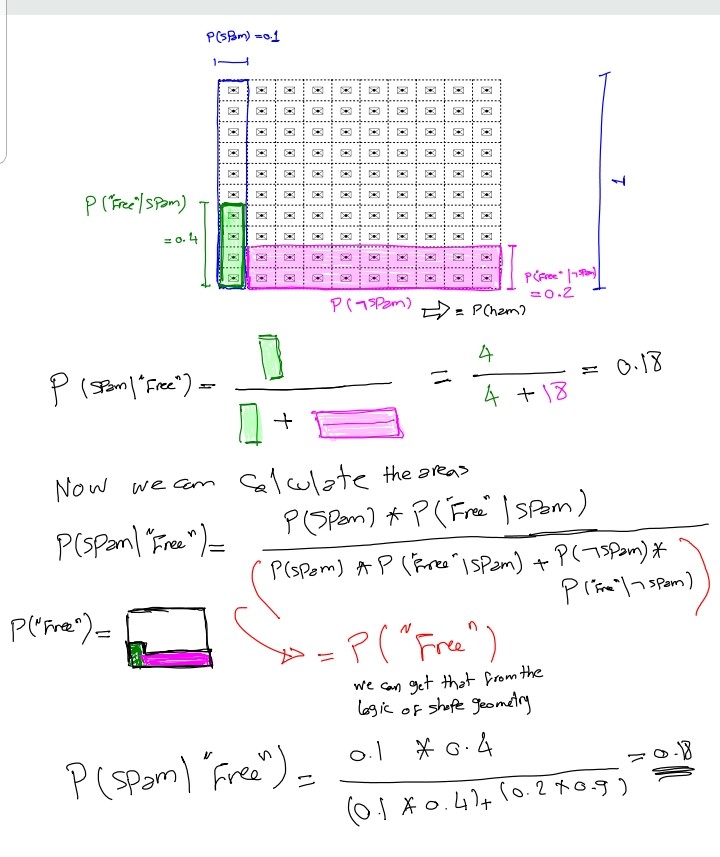 P(spam) = 0.1
P("Free"|spam)
= 0.4
1
P("Free"|¬spam)
= 0.2
P(¬spam) ⇨ = P(ham)
P(spam|"Free") = 4 / 4 + 18 = 0.18
+
Now we can calculate the areas
P(spam|"Free") = P(spam) * P("Free"|spam)
P(spam) * P("Free"|spam) + P(¬spam) *
P("Free"|¬spam)
P("Free") =
= P("Free")
we can get that from the
logic of shape geometry
P(spam|"Free") = 0.1 * 0.4 = 0.18
(0.1 * 0.4) + (0.2 * 0.9)